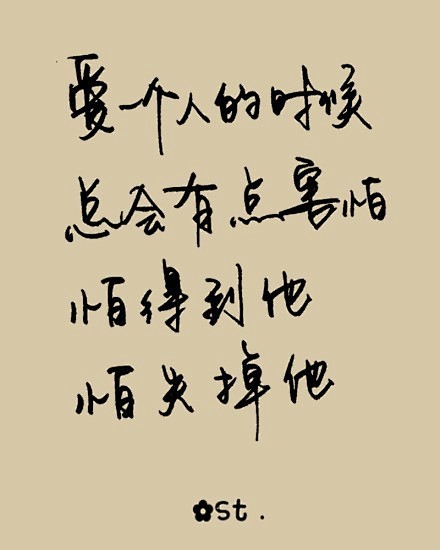 爱一个人的时候
总会有点害怕
怕得到他
怕失掉他
✿St.